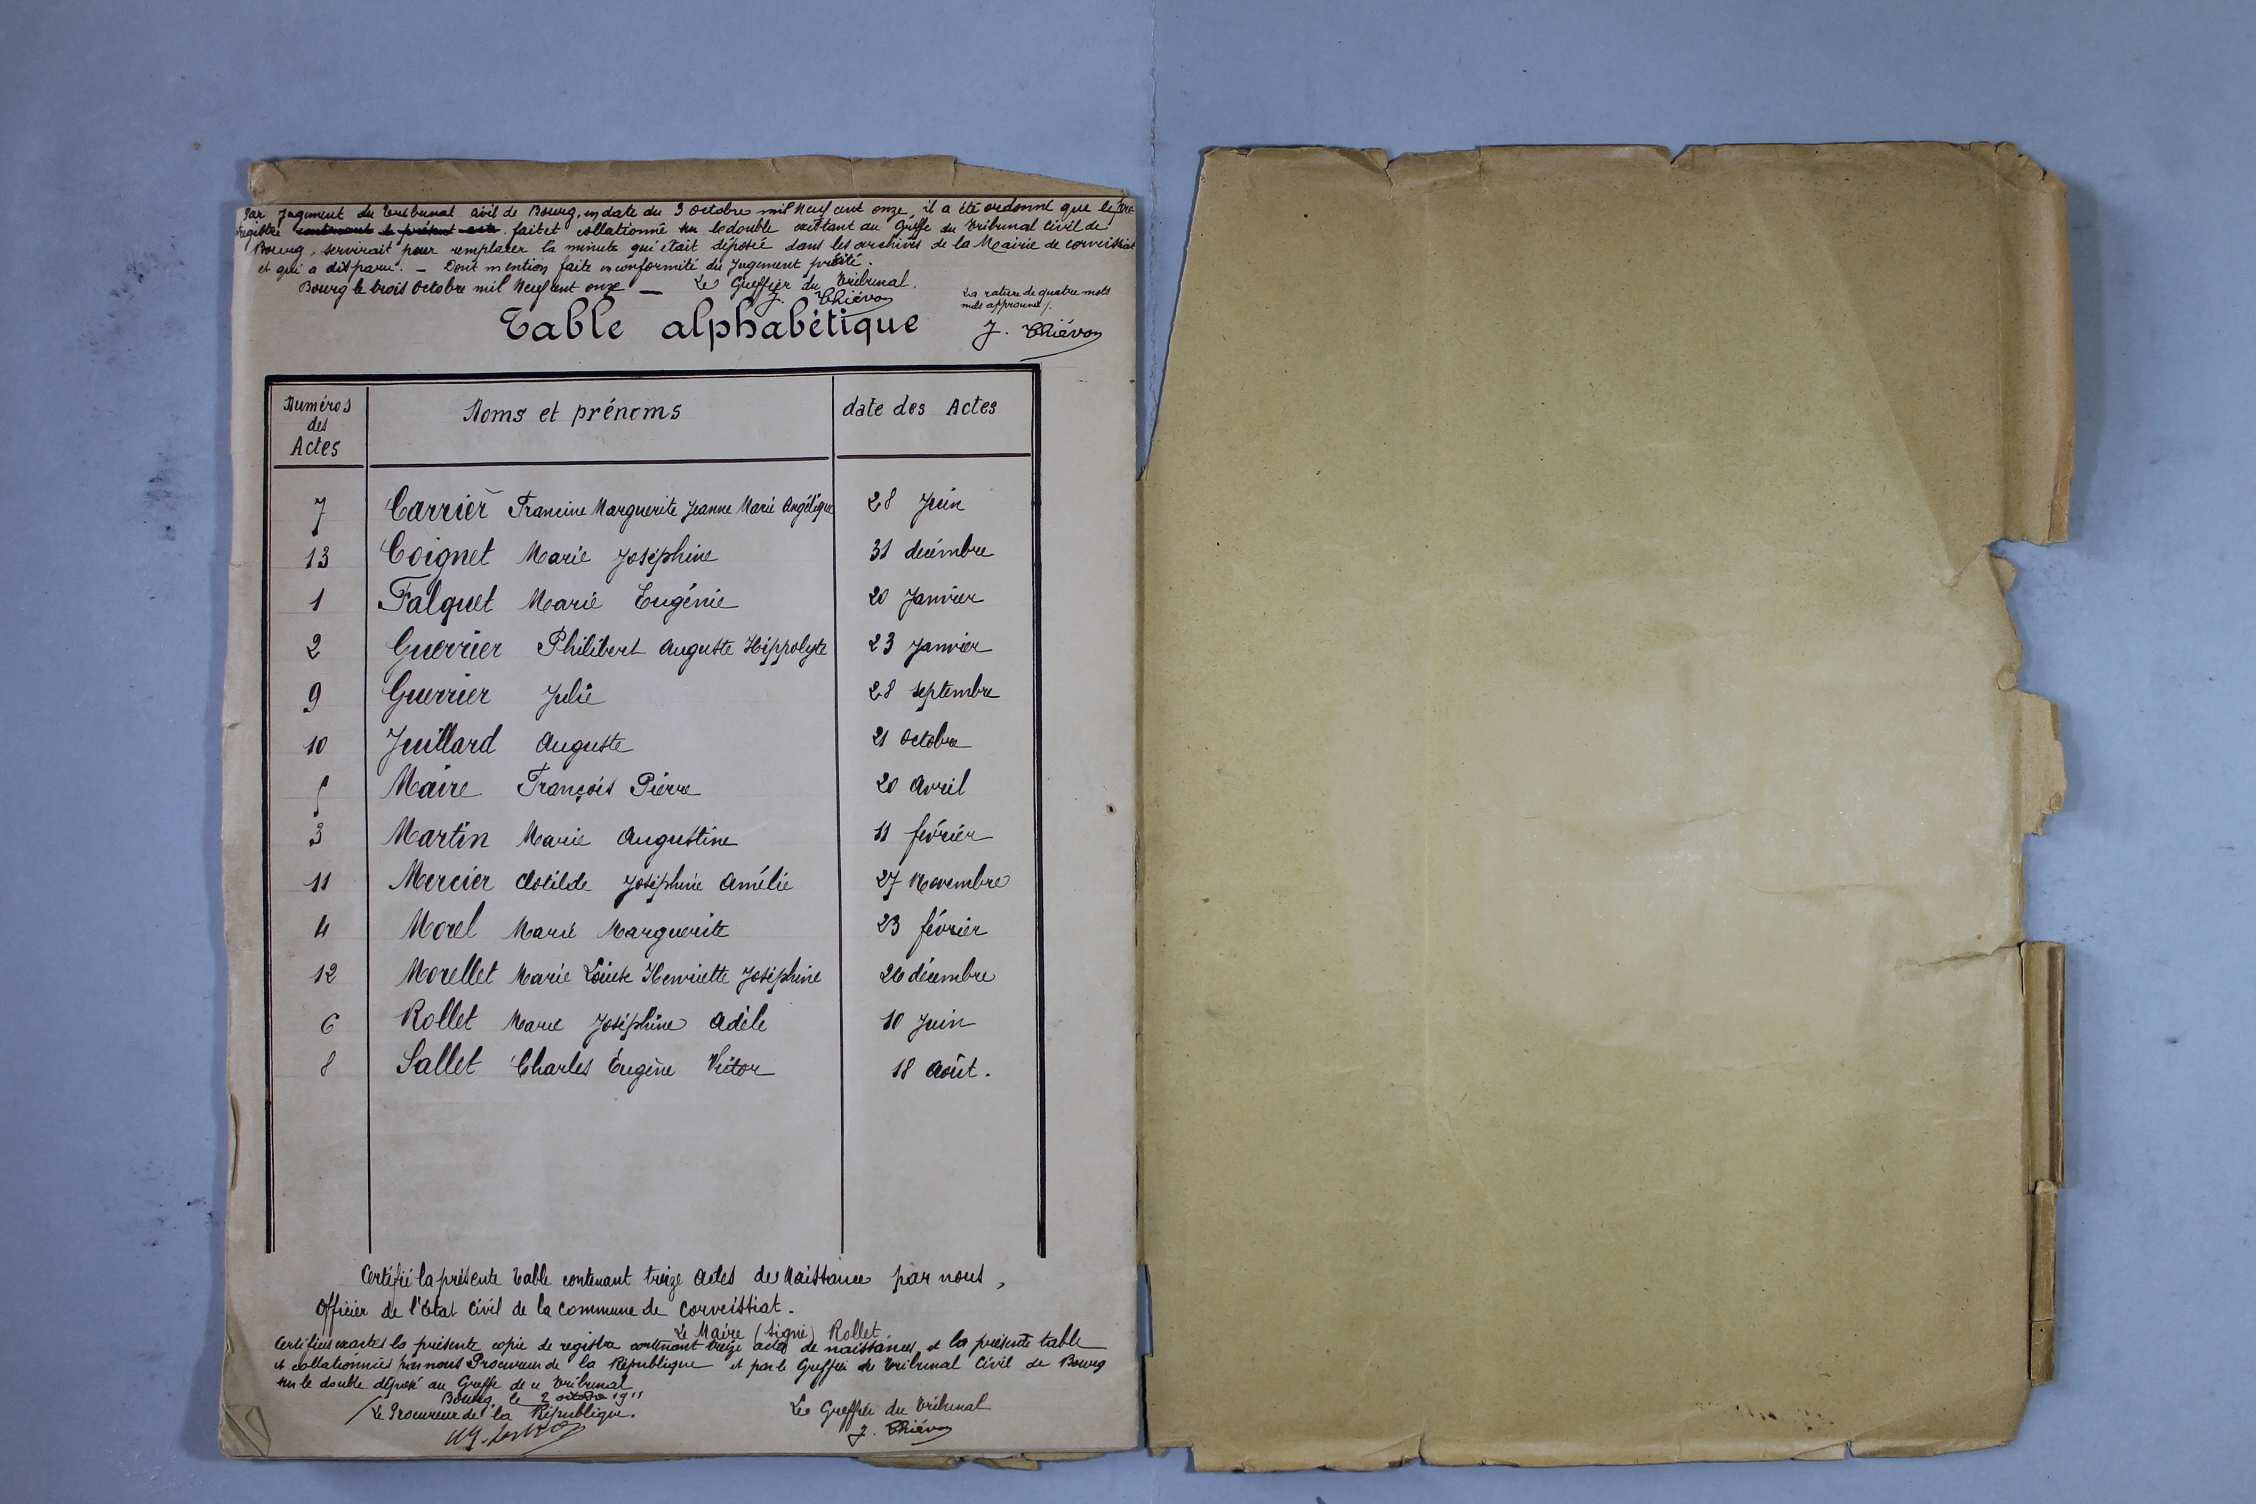 Par Jugement du Tribunal civil de Bourg, en date du 3 octobre mil Neuf cent onze, il a été ordonné que le
registre contenant le présent acte fait et collationné sur le double existant au Greffe du Tribunal Civil de
Bourg, servirait pour remplacer la minute qui était déposée dans les archives de la Mairie de Corveissiat
et qui a disparu. — Dont mention faite en conformité du Jugement précité.
Bourg le trois Octobre mil Neuf cent onze — Le Greffier du Tribunal.
J. Thiévon
La rature de quatre mots
nuls approuvée /.
J. Thiévon
Table alphabétique
Numéros des Actes | Noms et prénoms | date des Actes
7 Carrier Francine Marguerite Jeanne Marie Angélique 28 Juin
13 Coignet Marie Joséphine 31 decémbre
1 Falquet Marie Eugénie 20 Janvier
2 Guerrier Philibert Auguste Hippolyte 23 Janvier
9 Guerrier Julie 28 septembre
10 Juillard Auguste 21 Octobre
5 Maire François Pierre 20 Avril
3 Martin Marie Augustine 11 février
11 Mercier Clotilde Joséphine Amélie 27 Novembre
4 Morel Marie Marguerite 23 février
12 Morellet Marie Louise Henriette Joséphine 26 décembre
6 Rollet Marie Joséphine Adèle 10 Juin
8 Sallet Charles Eugène Victor 18 Août.
Certifié la présente table contenant treize actes de Naissance par nous,
Officier de l'Etat Civil de la Commune de Corveissiat.
Le Maire (signé) Rollet
Certifiées exactes la présente copie de registre contenant treize actes de naissances, et la présente table
et collationnées par nous Procureur de la République et par le Greffier du Tribunal Civil de Bourg
sur le double déposé au Greffe de ce Tribunal
Bourg, le 2 octobre 1911
Le Procureur de la République.
Le Greffier du Tribunal
J. Thiévon